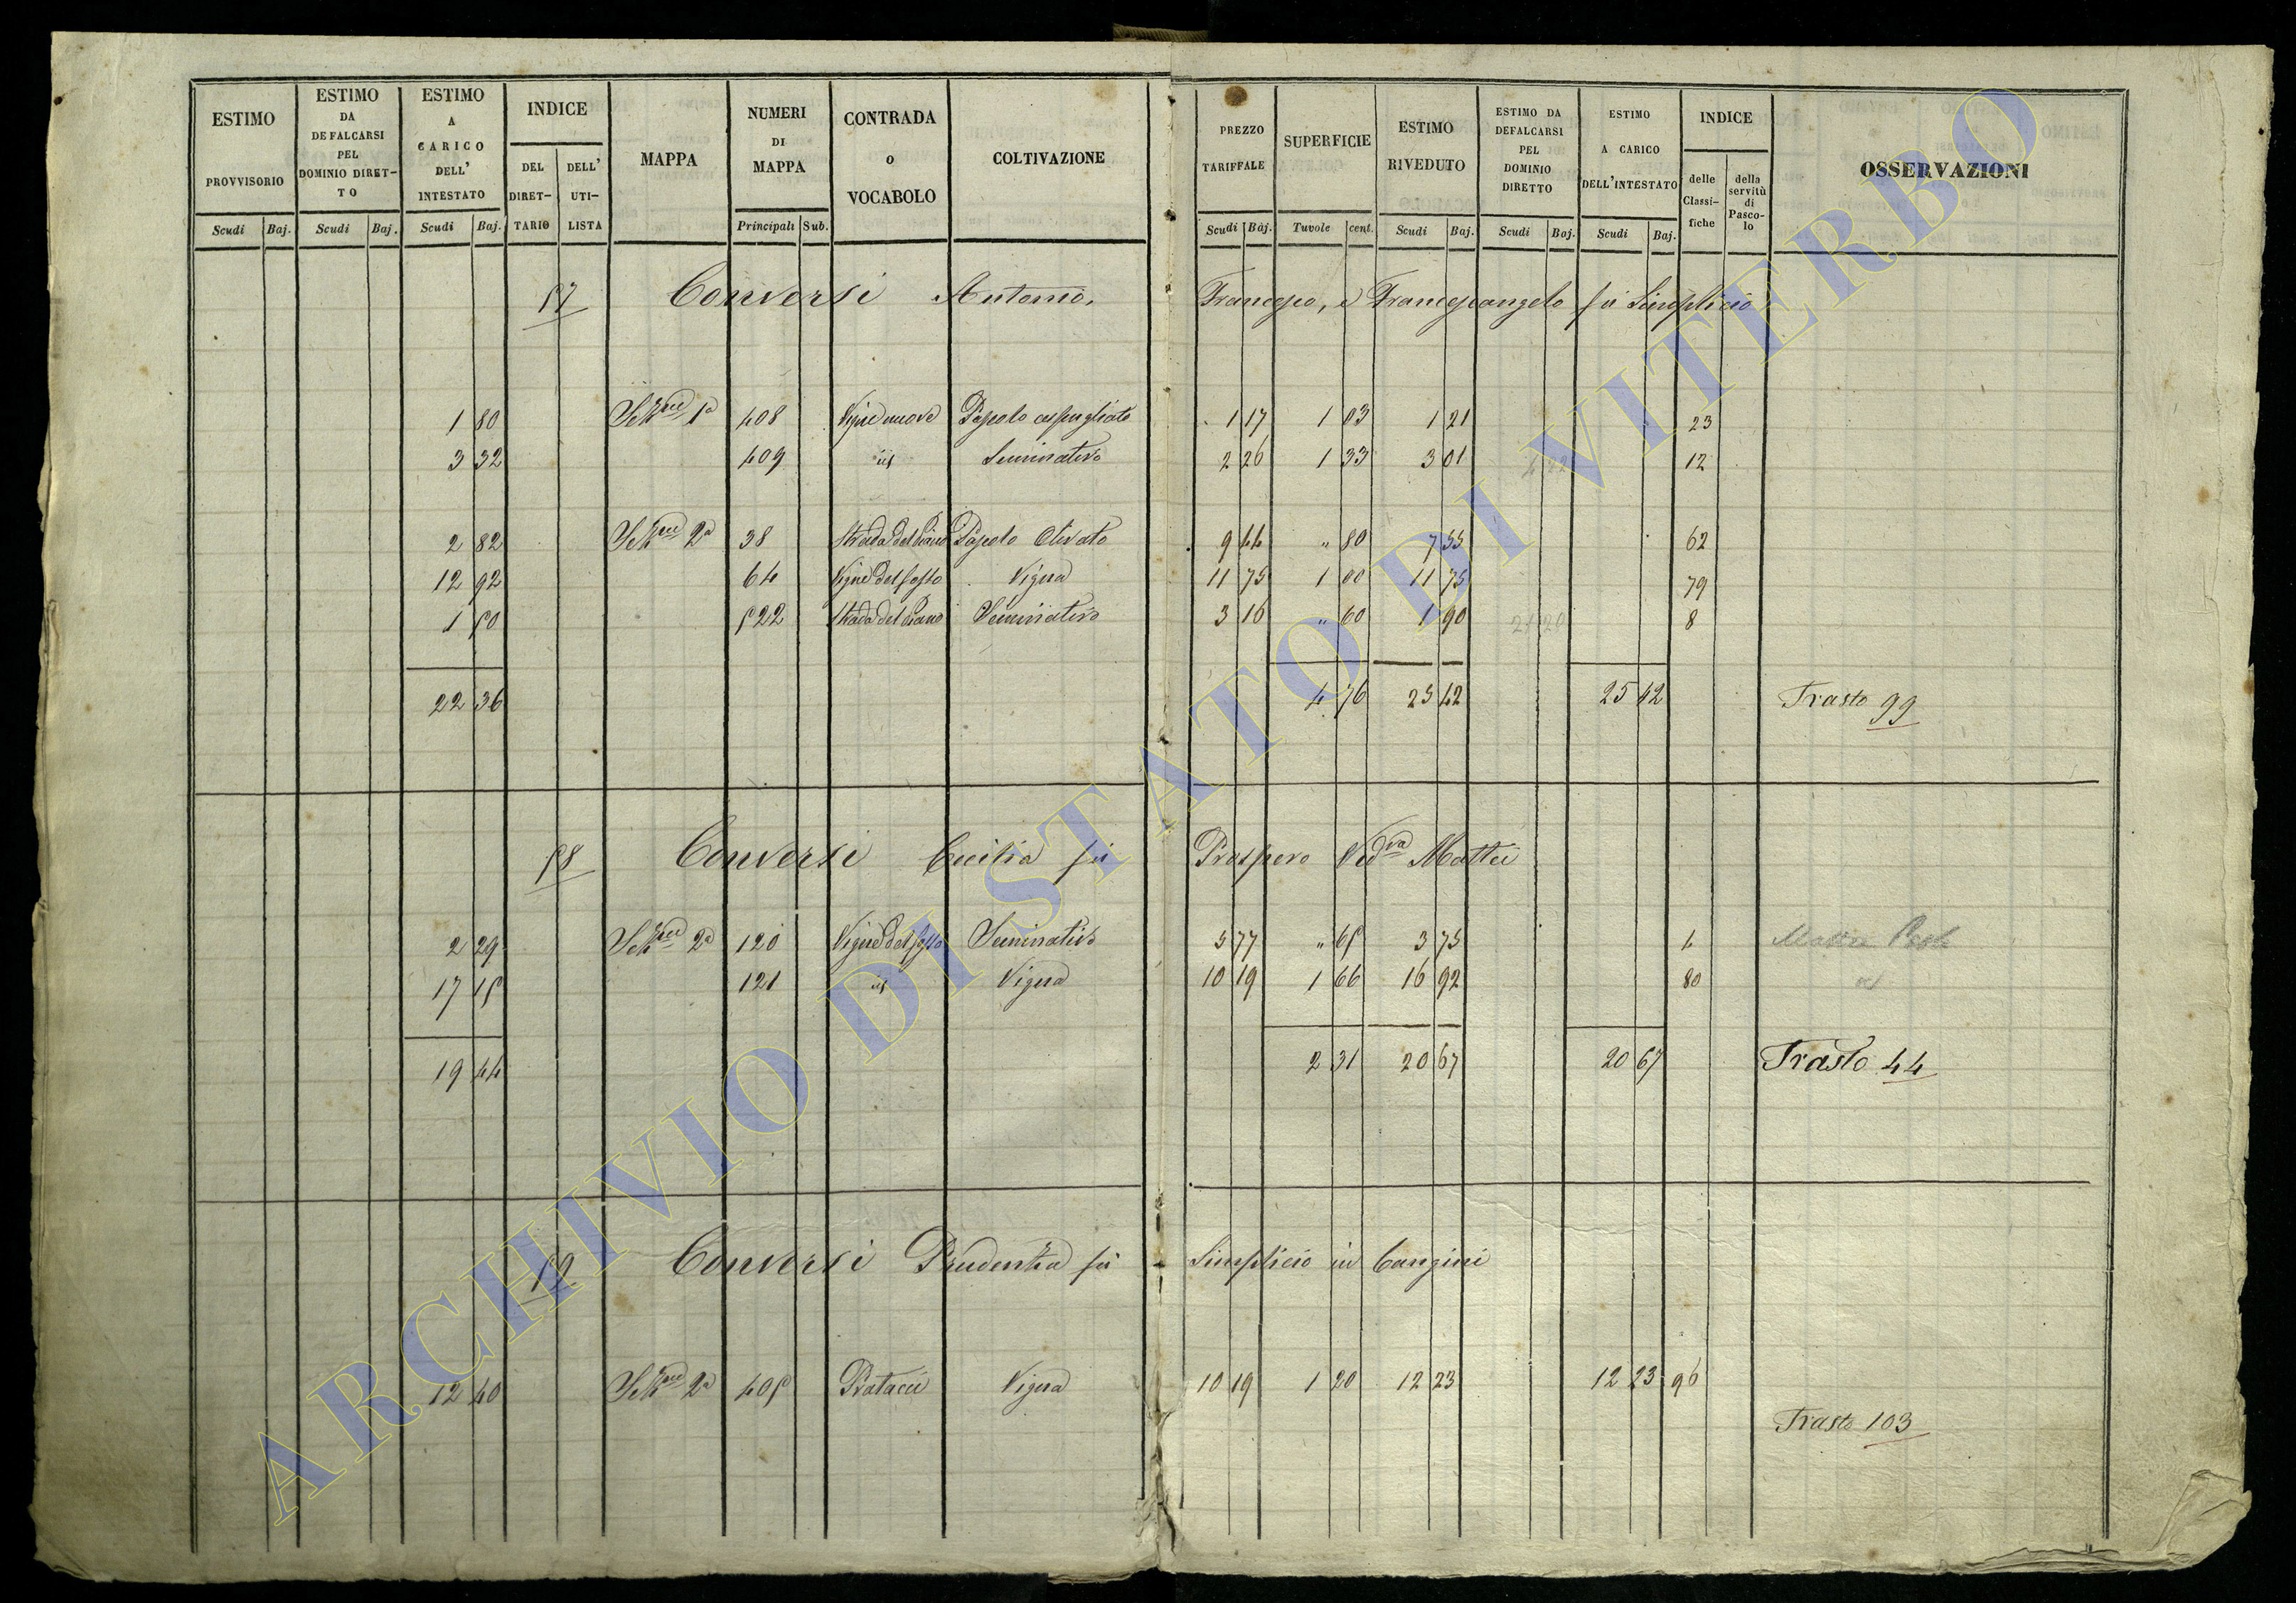 ESTIMO PROVVISORIO | ESTIMO DA DEFALCARSI PEL DOMINIO DIRET-TO | ESTIMO A CARICO DELL' INTESTATO | INDICE | MAPPA | NUMERI DI MAPPA | CONTRADA o VOCABOLO | COLTIVAZIONE | PREZZO TARIFFALE | SUPERFICIE | ESTIMO RIVEDUTO | ESTIMO DA DEFALCARSI PEL DOMINIO DIRETTO | ESTIMO A CARICO DELL'INTESTATO | INDICE | OSSERVAZIONI
DEL DIRET-TARIO | DELL' UTI-LISTA | delle Classi-fiche | della servitù di Pasco-lo
Scudi Baj. | Scudi Baj. | Scudi Baj. | Principali Sub. | Scudi Baj. | Tuvole cent. | Scudi Baj. | Scudi Baj. | Scudi Baj.
57 Conversi Antonio, Francesco, e Francescangelo fu Simplicio
1 80 Sezne 1a 408 Vigne nuove Pascolo cespugliato 1 17 1 03 1 21 23
3 32 409 id Seminativo 2 26 1 33 3 01 12
2 82 Sezne 2a 38 Strada del Piano Pascolo Olivato 9 44 " 80 7 55 62
12 92 64 Vigne del fosso Vigna 11 75 1 00 11 75 79
1 50 522 Strada del Piano Seminativo 3 16 " 60 1 90 21 20 8
22 36 4 76 25 42 25 42 Trasto 99
58 Conversi Cecilia fu Prospero Vedva Mattei
2 29 Sezne 2a 120 Vigne del fosso Seminativo 5 77 " 65 3 75 4
17 15 121 id Vigna 10 19 1 66 16 92 80 id
19 44 2 31 20 67 20 67 Trasto 44
59 Conversi Prudenzia fu Simplicio in Cangini
12 40 Sezne 2a 405 Pratacci Vigna 10 19 1 20 12 23 12 23 96
Trasto 103
ARCHIVIO DI STATO DI VITERBO